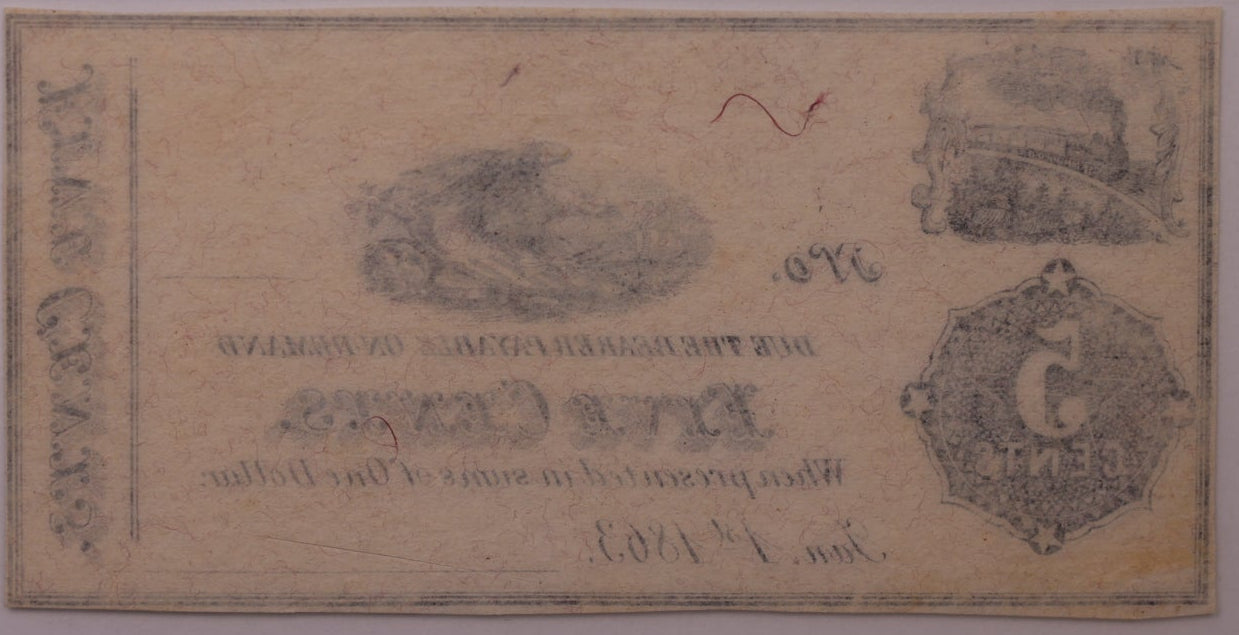 No.
5
CENTS
DUE THE BEARER PAYABLE ON DEMAND
FIVE CENTS.
When presented in sums of One Dollar.
Jan. 1st 1863.
FIVE CENTS.